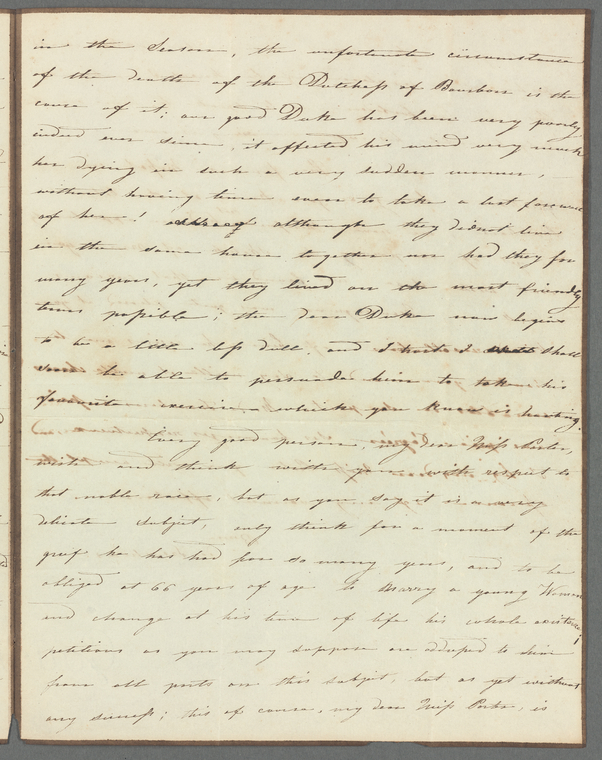 in the Season, the unfortunate circumstance
of the death of the Dutchess of Bourbon is the
cause of it; our good Duke has been very poorly
indeed ever since, it affected his mind very much
her dying in such a very sudden manner,
without having time even to take a last farewell
of her! although they did not live
in the same house together nor had they for
many years, yet they lived on the most friendly
terms possible; the dear Duke now begins
to be a little less dull, and I hope I shall
soon be able to persuade him to take his
favourite exercise, which you know is hunting.
Every good person, my dear Miss Porter,
wish and think with you with respect to
that noble race, but as you say it is a very
delicate Subject, only think for a moment of the
grief he has had for so many years, and to be
obliged at 66 years of age to Marry a young Woman
and change at his time of life his whole existence!
petitions as you may suppose are addressed to him
from all parts on this subject, but as yet without
any success; this of course, my dear Miss Porter, is